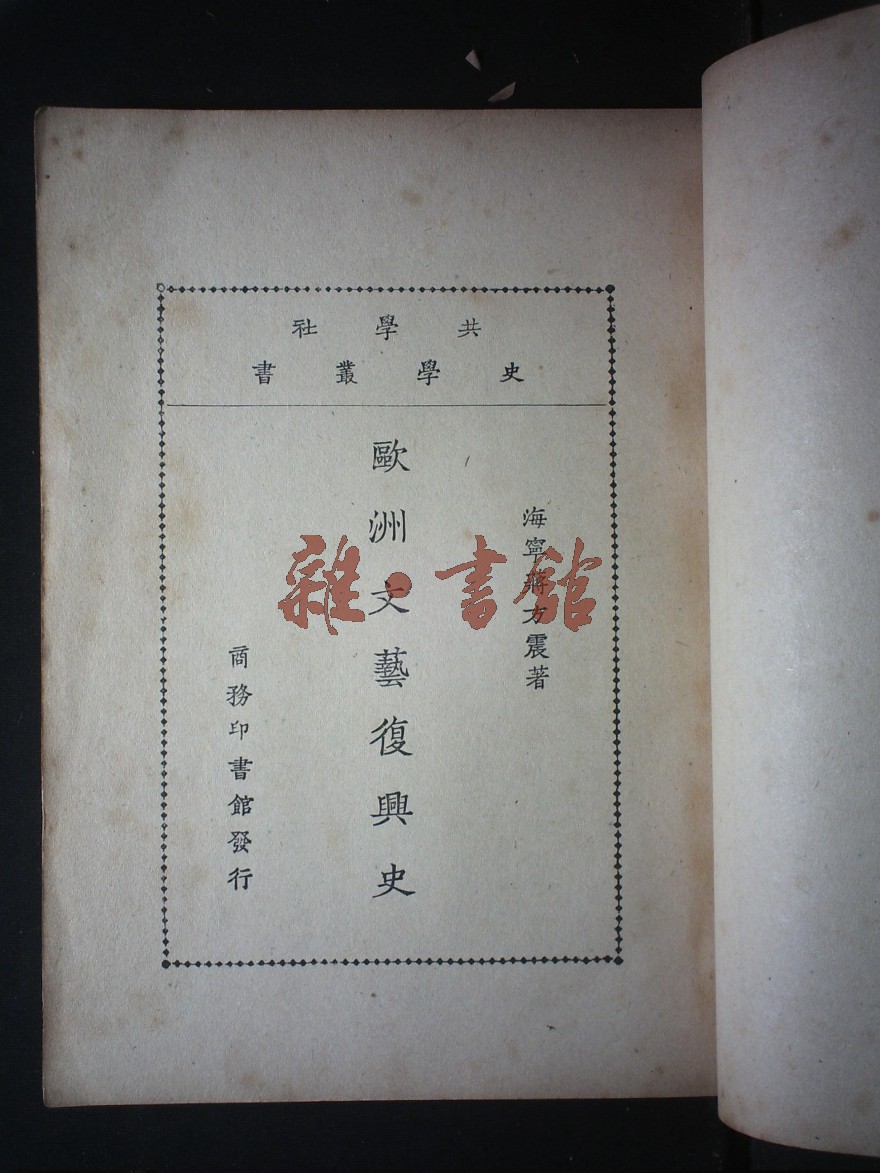 共學社
史學叢書
海寧蔣方震著
歐洲文藝復興史
商務印書館發行
雜·書館